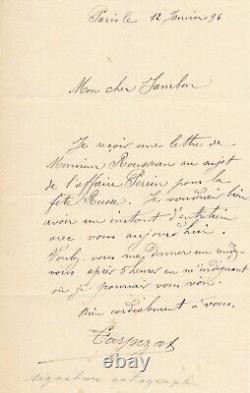 Paris le 12 Janvier 96
Mon cher Jambon
Je reçois une lettre de
Monsieur Rousseau au sujet
de l'affaire Perrin pour la
fête Russe. Je voudrais bien
avoir un instant d'entretien
avec vous aujourd'hui.
Voulez-vous me donner un rendez
vous après 6 heures en m'indiquant
où je pourrais vous voir.
Bien cordialement à vous.
Carpezat
signature autographe